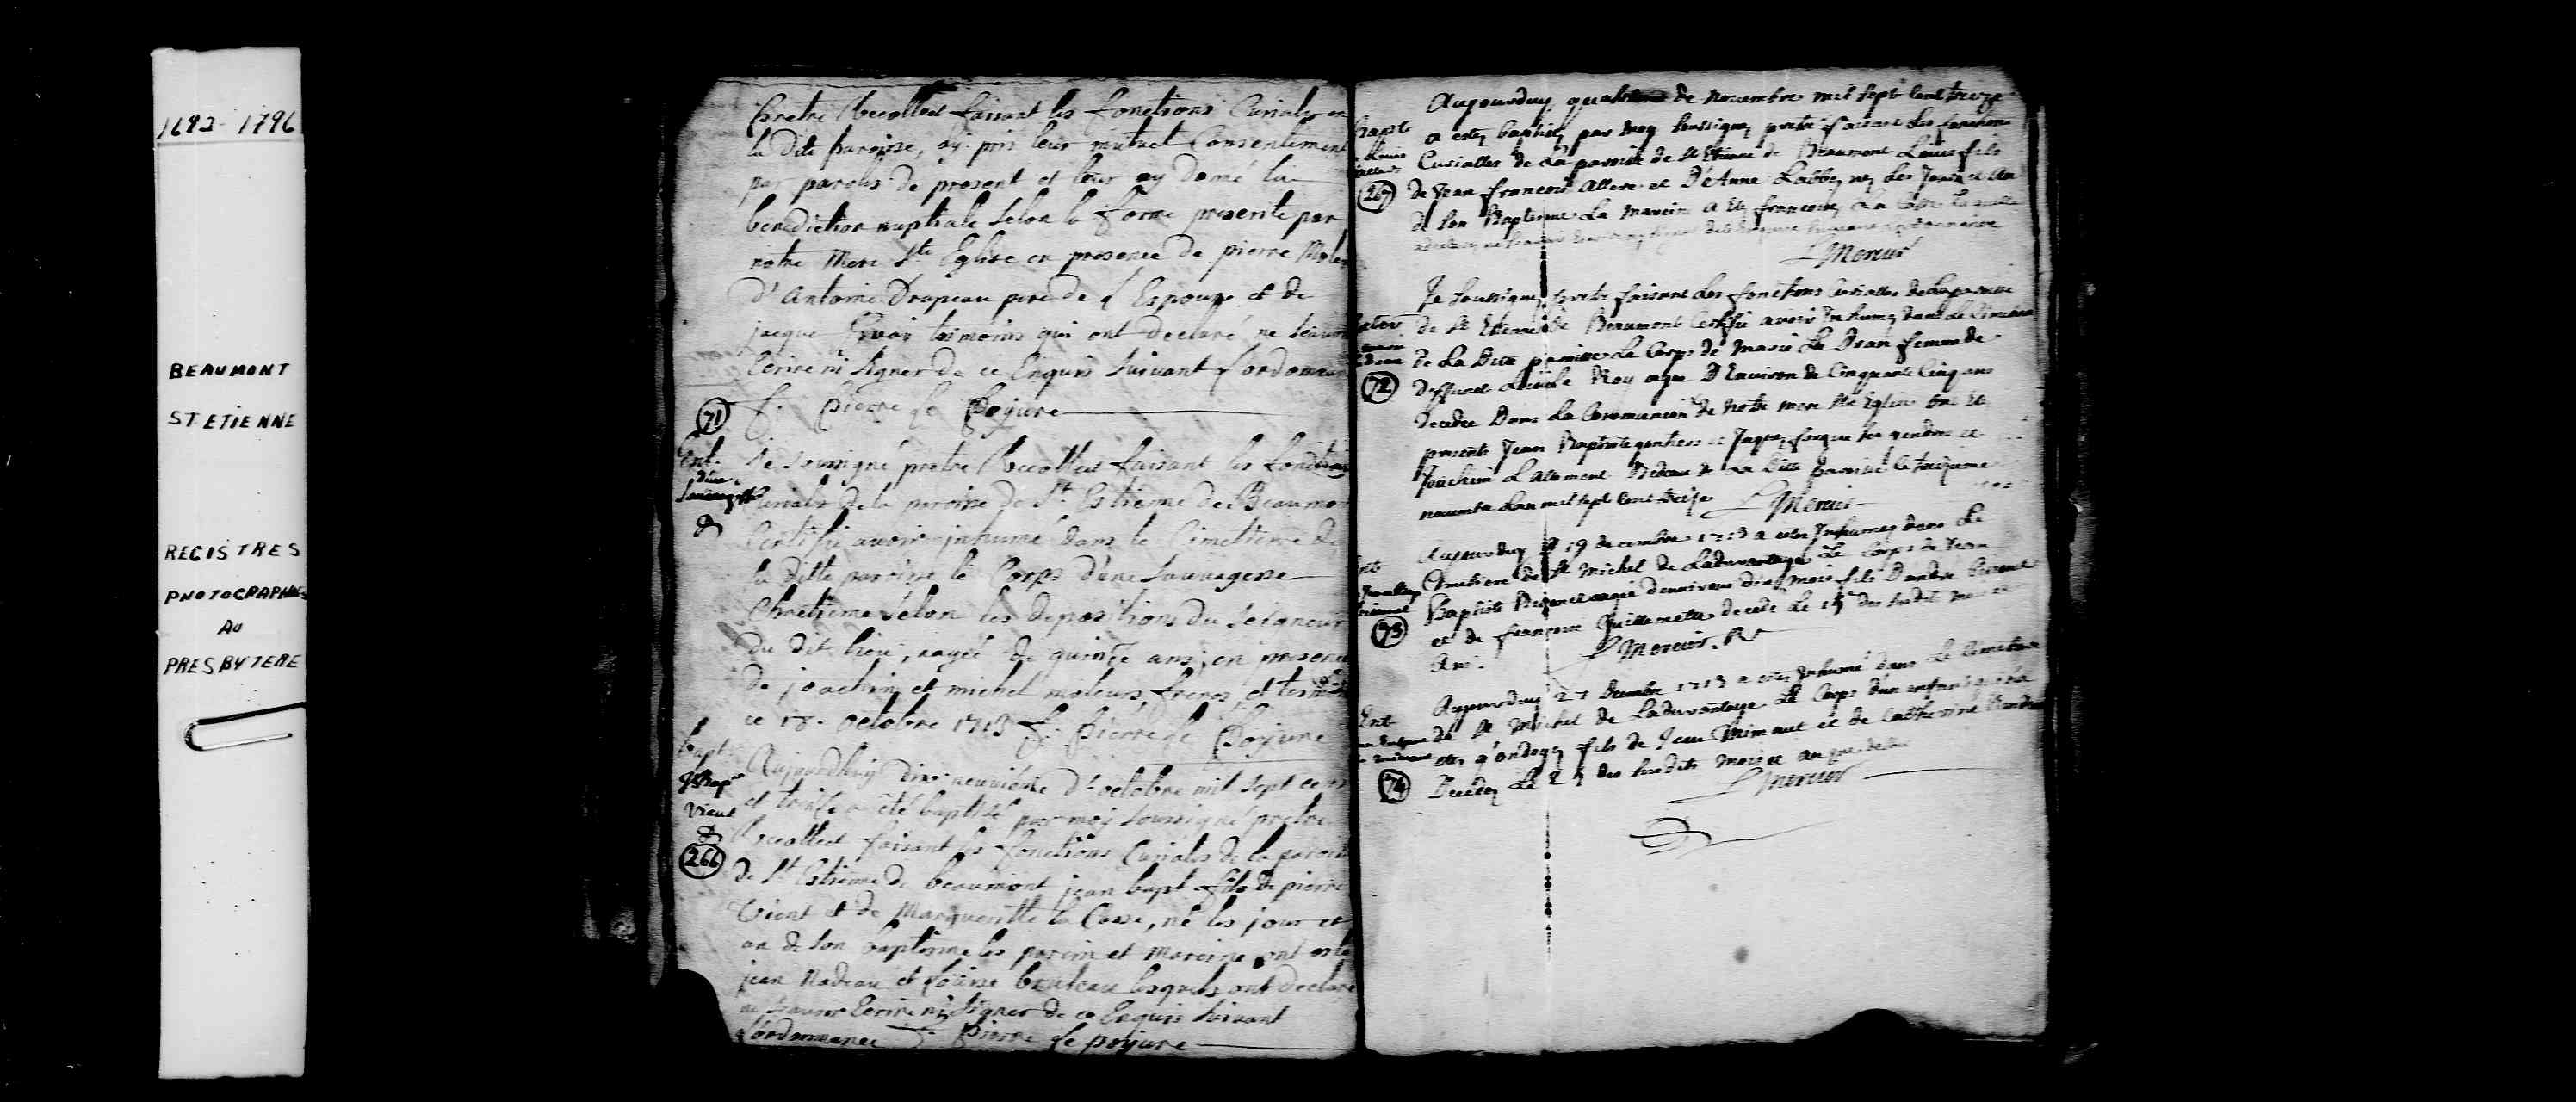 1692-1796
BEAUMONT
ST ETIENNE
REGISTRES
PHOTOGRAPHIES
AU
PRESBYTERE
Pretre Recollect faisant les fonctions Curiales en
la dite paroisse, ay pris leur mutuel Consentement
par paroles de present et leur ay donné la
benediction nuptiale selon la forme prescrite par
notre Mere Ste Eglise en presence de pierre
d'Antoine Drapeau pere de l'Espouse et de
jacque temoins qui ont declaré ne scavoir
Ecrire ni signer de ce Enquis suivant l'ordonnance
71
f. Pierre le Poyure
Ent.
d'une
Sauvagesse
Je soussigné pretre Recollect faisant les fonctions
Curiales de la paroisse de St Estienne de Beaumon
Certifie avoir inhumé dans le Cimetierre de
la ditte paroisse le Corps d'une Sauvagesse
Chretienne selon les depositions du Seigneur
du dit lieu, agée de quinze ans, en presence
de joachim et michel moleurs freres, et temoins
ce 18. octobre 1713 f. Pierre le Poyure
bapt
J Bap
Vient
266
Aujourdhuy dix neuvième d'octobre mil sept cens
et treize a été baptisé par moy soussigné pretre
Recollect faisant les fonctions Curiales de la paroisse
de St Estienne de beaumont jean bapt. fils de pierre
Vient et de Marguerittte la Casse, né les jour et
an de son baptesme les parein et Mareine ont esté
jean Nadeau et Louise lesquels ont declaré
ne scavoir Ecrire ni signer de ce Enquis suivant
l'ordonnance f. Pierre le poyure
Bapt
Louis
267
Aujourduy de Novembre mil sept cent treize
a estez baptisez par moy soussignez pretre faisant les fonctions
Curialles de La paroisse de St Etienne de Beaumont Louis fils
de Jean francois Allere et D'Anne Labbez nez les Jour et an
de son Baptesme La Mareine a Ete francoise La Casse laquelle
Mercier
Enter
72
Je soussignez pretre faisant Les fonctions Curialles de La paroisse
de St Etienne de Beaumont Certifie avoir Inhumez dans Le Cimetiere
de La Ditte paroisse Le Corps de Marie Le Dran femme de
deffunct Louis le Roy agee D'Environ de Cinquante Cinq ans
Decedee Dans La Communion de Notre mere Ste Eglise ont Ete
presents Jean Baptiste gontiers et Jaque forgue ses gendres et
Joachim Lallement Bedeau de La Ditte paroisse le treizieme
novembre Lan mil sept Cent treize
Mercier
Ent
73
Aujourduy 19 decembre 1713 a estez Inhumez dans Le
Cimetiere de St Michel de Ladurantaye Le Corps de Jean
Baptiste agé d'environs dix mois fils D'andre
et de francoise Quillemette decedé Le 15 des susdits mois et
An.
Mercier. Pr
Ent
74
Aujourduy 27 Decembre 1713 a estez Inhumé dans Le Cimetiere
de St Michel de Ladurantaye Le Corps d'un enfant qui n'a
etez q'ondoyez fils de Jean et de Catherine
Decedez Le des susdits mois et an que dessus
Mercier